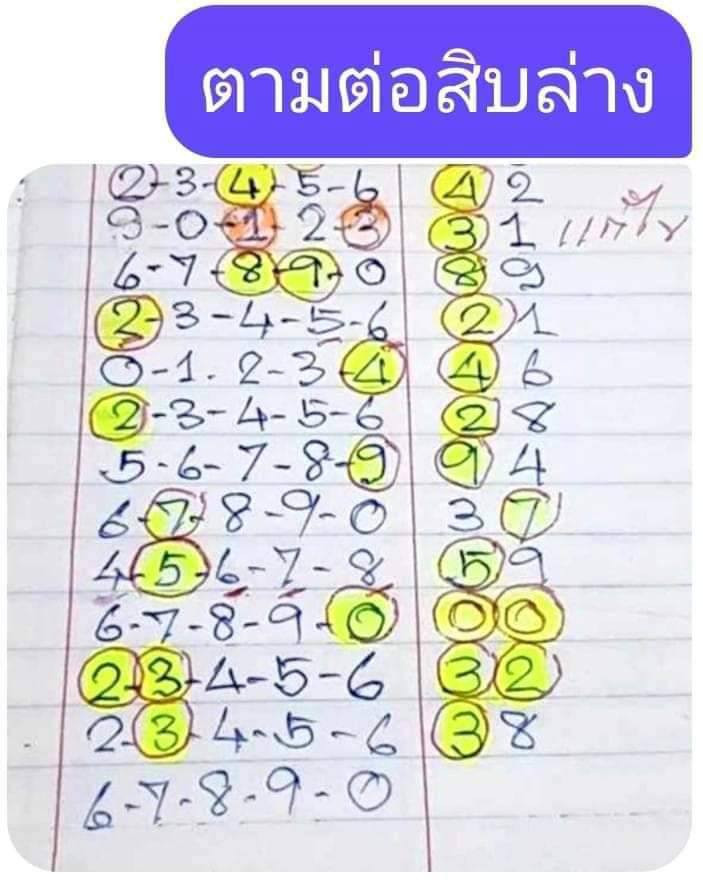 ตามต่อสิบล่าง
2-3-4-5-6 42
9-0-1-2-3 31
6-7-8-9-0 89
2-3-4-5-6 21
0-1.2-3-4 46
2-3-4-5-6 28
5-6-7-8-9 94
6-7-8-9-0 37
4-5-6-7-8 59
6-7-8-9-0 00
2-3-4-5-6 32
2-3-4-5-6 38
6-7-8-9-0